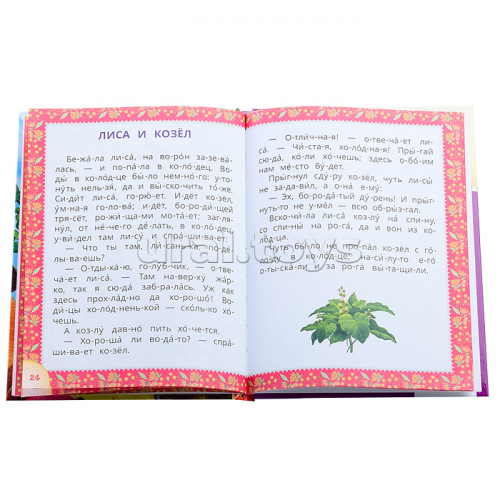 ЛИСА И КОЗЁЛ
Бе-жа́-ла ли-са́, на во-ро́н за-зе-ва́-
лась, — и по-па́-ла в ко-ло́-дец. Во-
ды́ в ко-ло́д-це бы́-ло нем-но́-го: у-то-
ну́ть нель-зя́, да и вы́-ско-чить то́-же.
Си-ди́т ли-са́, го-рю́-ет. И-дёт ко-зёл,
у́м-на-я го-ло-ва́; и-дёт, бо-ро-ди́-щей
тря-сёт, ро-жи́-ща-ми мо-та́-ет; загля-
ну́л, от не́-че-го де́-лать, в ко-ло́-дец,
у-ви́-дел там ли-су́ и спра́-ши-ва-ет:
— Что ты там, ли́-сань-ка, по-де́-
лы-ва-ешь?
— О-тды-ха́-ю, го-лу́б-чик, — о-тве-
ча́-ет ли-са́. — Там на-вер-ху́ жа́р-
ко, так я сю-да́ за-бра-ла́сь. Уж как
здесь про-хла́д-но да хо-ро-шо́! Во-
ди́-цы хо-ло́д-нень-кой — ско́ль-ко хо́-
чешь.
А коз-лу́ дав-но́ пить хо́-че-тся.
— Хо-ро-ша́ ли во-да́-то? — спра́-
ши-ва-ет ко-зёл.
24
— О-тли́ч-на-я! — о-тве-ча́-ет ли-
са́. — Чи́-ста-я, хо-ло́д-на-я! Пры́-гай
сю-да́, ко́-ли хо́-чешь; здесь о-бо́-им
нам ме́-сто бу́-дет.
Пры́г-нул сду́-ру ко-зёл, чуть ли-сы́
не за-да-ви́л, а о-на́ е-му́:
— Эх, бо-ро-да́-тый ду́-рень! И пры́г-
нуть-то не у-ме́л — всю об-ры́з-гал.
Вско-чи́-ла ли-са́ коз-лу́ на спи́-ну,
со спи-ны́ на ро-га́, да и вон из ко-
ло́д-ца.
Чуть бы́-ло не про-па́л ко-зёл с го́-
ло-ду в ко-ло́д-це; на-си́-лу-то е-го́
о-ты-ска́-ли и за ро-га́ вы́-та-щи-ли.
ural.toys